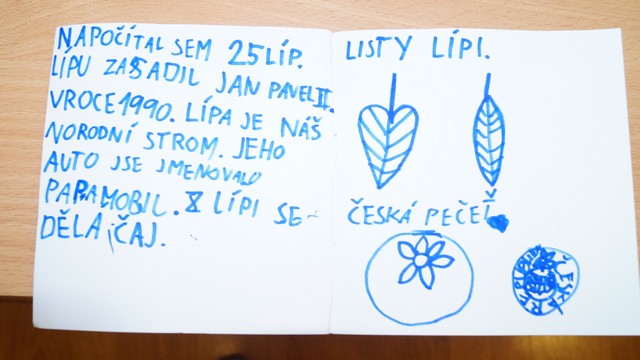 NAPOČÍTAL SEM 25 LÍP.
LÍPU ZASADIL JAN PAVEL II.
VROCE 1990. LÍPA JE NÁŠ
NORODNÍ STROM. JEHO
AUTO JSE JMENOVALO
PAPAMOBIL. Z LÍPI SE
DĚLA ČAJ.
LISTY LÍPI.
ČESKÁ PEČEŤ
ČESKÁ REPUBLIKA